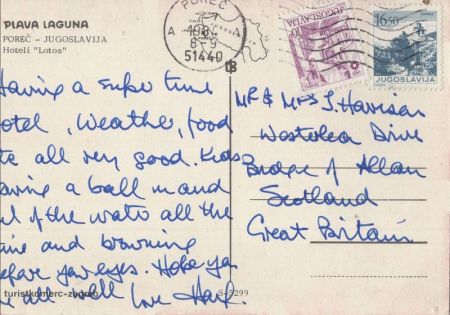 PLAVA LAGUNA
POREČ - JUGOSLAVIJA
Hoteli "Lotos"
POREČ
1984
A A
8-9
51440
JUGOSLAVIJA
10
16.50
JUGOSLAVIJA
aving a super time
otel, Weather, food
te all very good. Kids
aving a ball in and
of the water all the
ime and browning
efore your eyes. Hope you
e all well love
Mr & Mrs J. Harrison
Westerlea Drive
Bridge of Allan
Scotland
Great Britain
turistkomerc-zagreb
S-5299